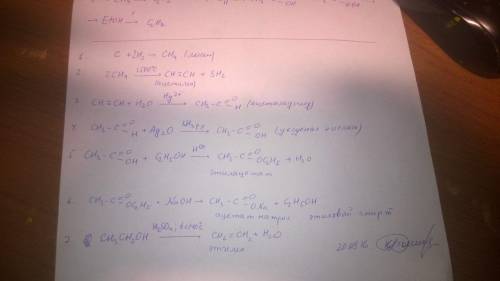 → EtOH → C₂H₄
C + 2H₂ → CH₄ (метан)
2. 2CH₄ 1500°C → CH≡CH + 3H₂
(ацетилен)
3. CH≡CH + H₂O Hg²⁺ → CH₃-C=O H (ацетальдегид)
4. CH₃-C=O H + Ag₂O → CH₃-C=O OH (уксусная кислота)
5 CH₃-C=O OH + C₂H₅OH H⊕ → CH₃-C=O OC₂H₅ + H₂O
этилацетат
6. CH₃-C=O OC₂H₅ + NaOH → CH₃-C=O ONa + C₂H₅OH
ацетат натрия этиловый спирт
7. CH₃CH₂OH H₂SO₄; t>140°C → CH₂=CH₂ + H₂O
этилен
20.03.16